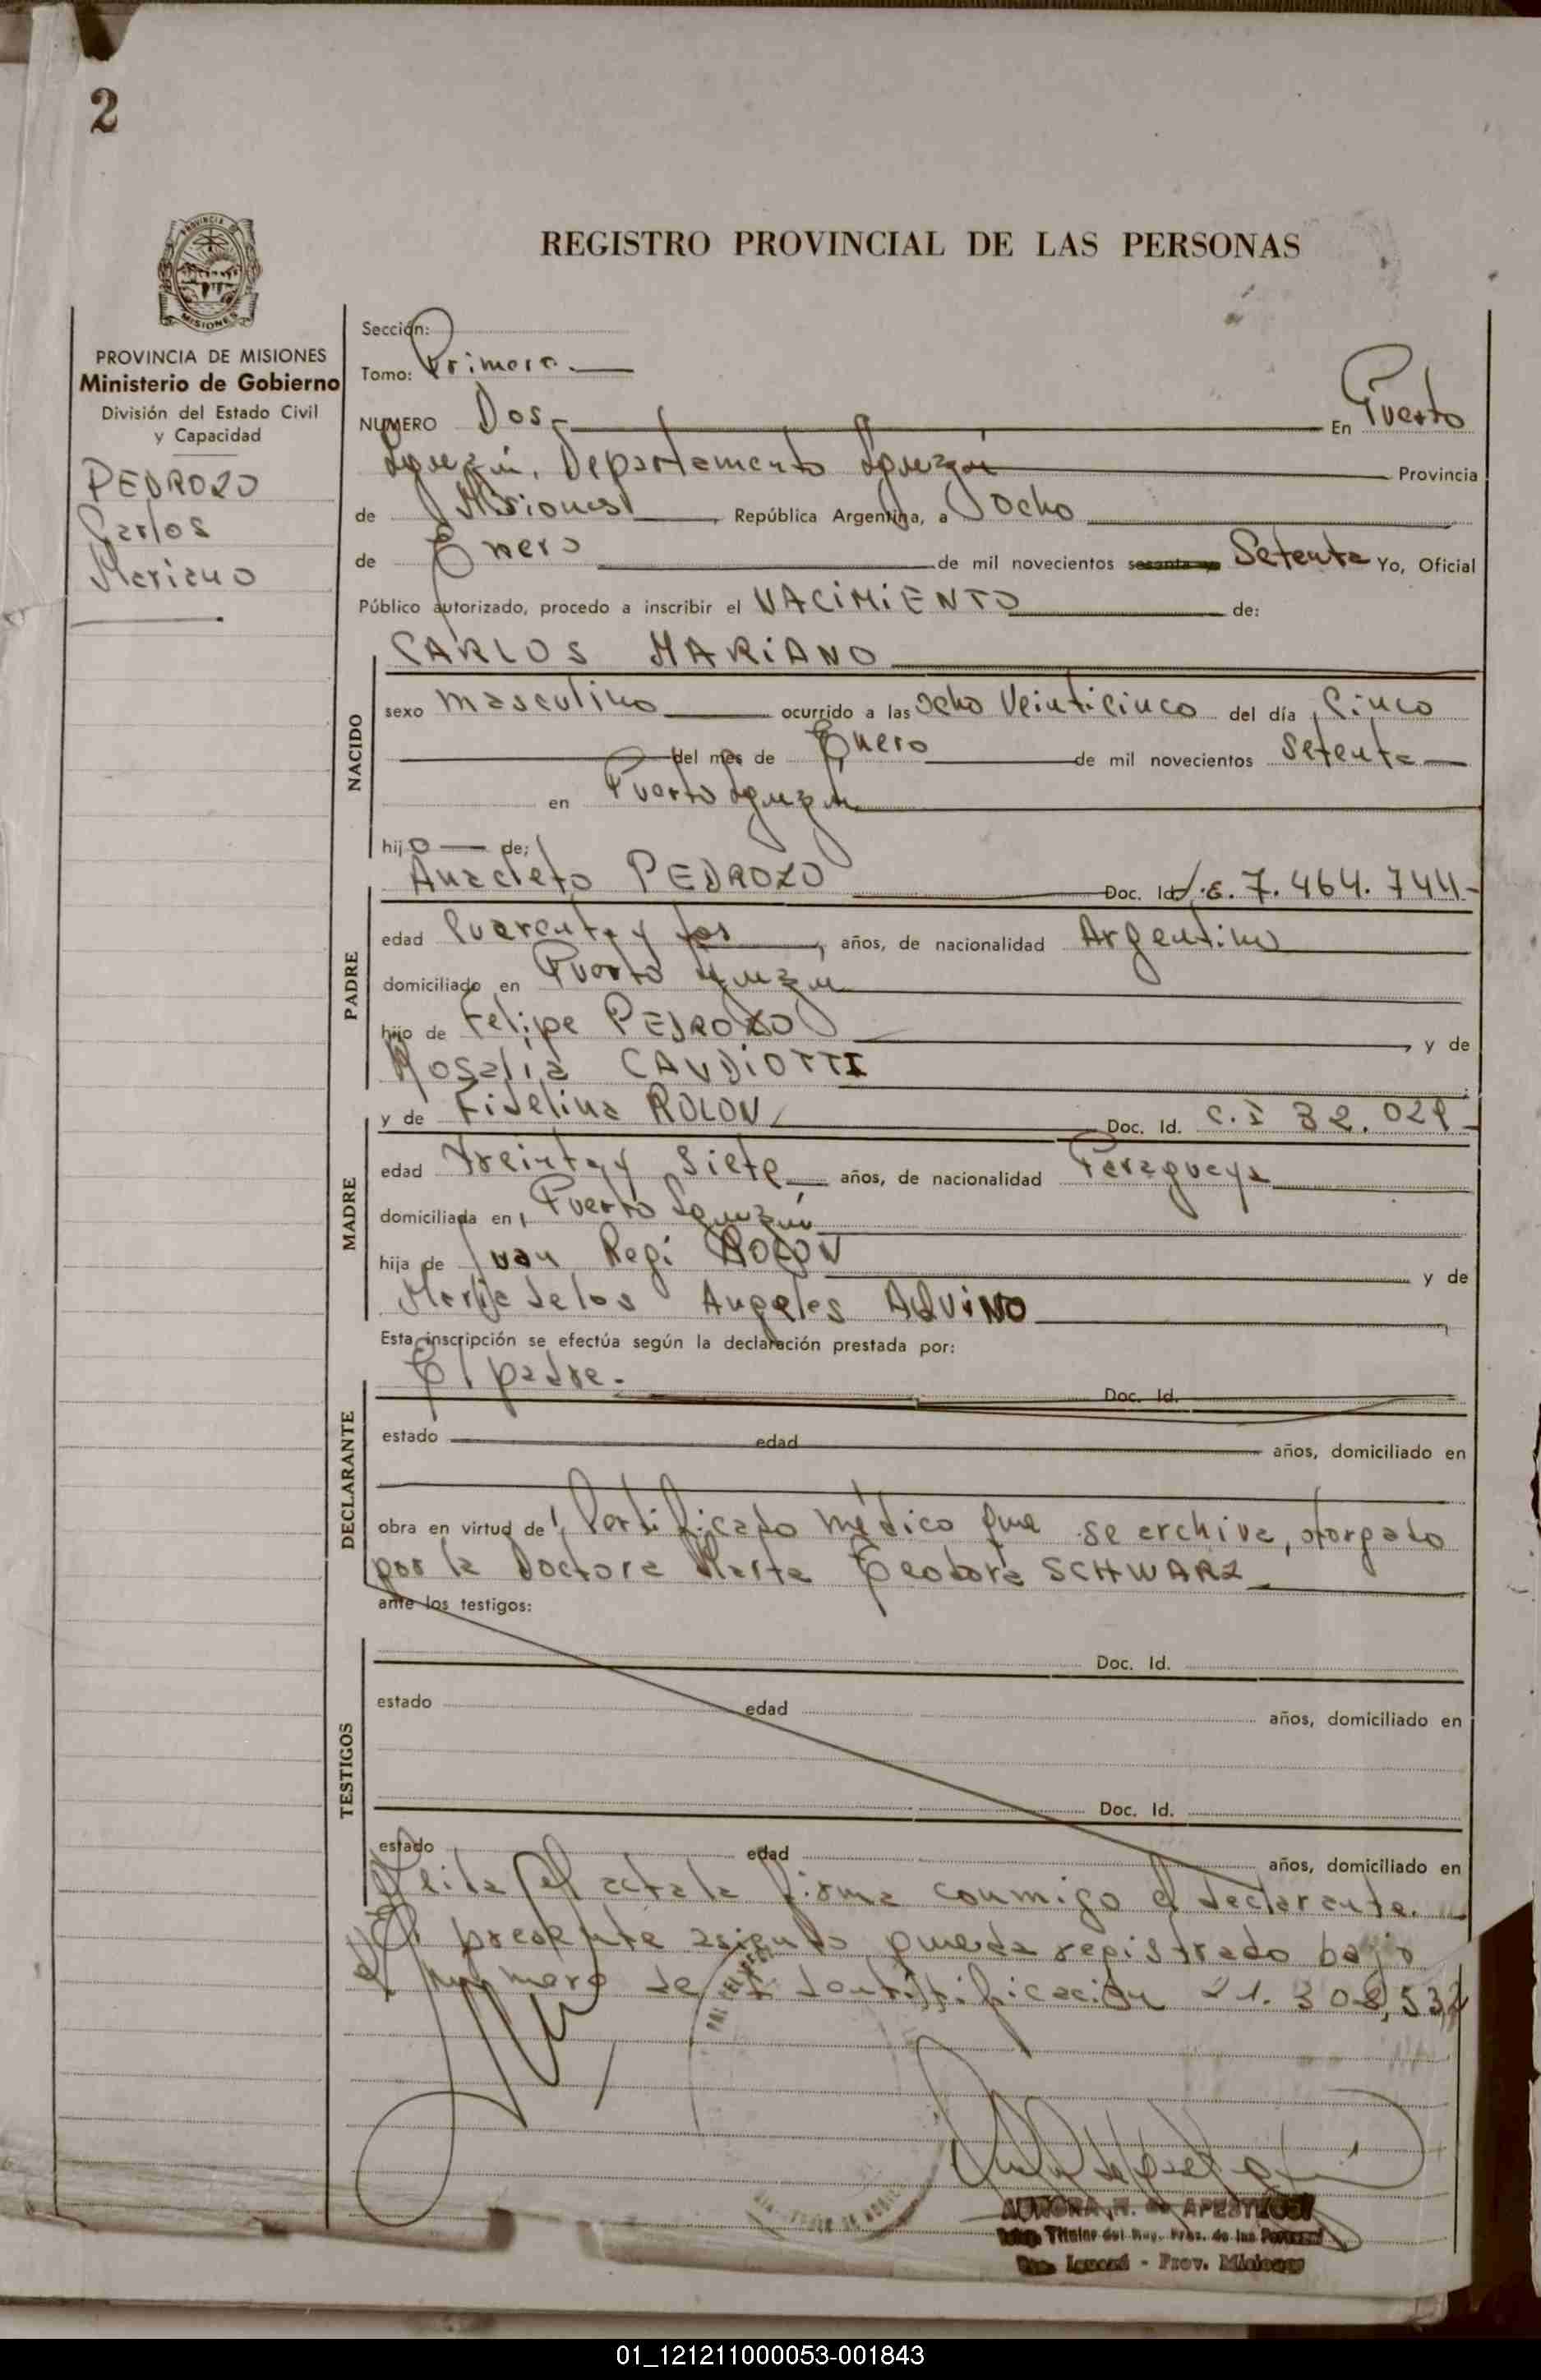 2
REGISTRO PROVINCIAL DE LAS PERSONAS
PROVINCIA DE
MISIONES
PROVINCIA DE MISIONES
Ministerio de Gobierno
División del Estado Civil
y Capacidad
PEDROZO
Carlos
Mariano
Sección:
Tomo: Primero.
NUMERO Dos En Puerto
Iguazú, Departamento Iguazú Provincia
de Misiones, República Argentina, a Ocho
de Enero de mil novecientos Setenta Yo, Oficial
Público autorizado, procedo a inscribir el NACIMIENTO de:
CARLOS MARIANO
NACIDO
sexo masculino ocurrido a las ocho Veinticinco del día Cinco
del mes de Enero de mil novecientos Setenta
en Puerto Iguazú
hijo de:
PADRE
Anacleto PEDROZO Doc. Id. L.E. 7.464.744-
edad Cuarenta y dos, años, de nacionalidad Argentino
domiciliado en Puerto Iguazú
hijo de Felipe PEDROZO, y de
Rosalia CANDIOTTI
MADRE
y de Fidelina ROLON Doc. Id. C.I
edad treinta y siete años, de nacionalidad Paraguaya
domiciliada en Puerto Iguazú
hija de Juan Regi ROLON y de
Maria de los Angeles AQUINO
Esta inscripción se efectúa según la declaración prestada por:
DECLARANTE
El padre. Doc. Id.
estado edad años, domiciliado en
obra en virtud de Certificado médico que se archiva, otorgado
por la Doctora Marta Teodora SCHWARZ
ante los testigos:
TESTIGOS
Doc. Id.
estado edad años, domiciliado en
Doc. Id.
estado edad años, domiciliado en
Leida el acta la firma conmigo el declarante.
El presente asiento queda registrado bajo
el número de identificación 21.308,532
AURORA de APESTEGUI
Titular del Reg. Prov. de las Personas
Pto. Iguazú - Prov. Misiones
01_121211000053-001843